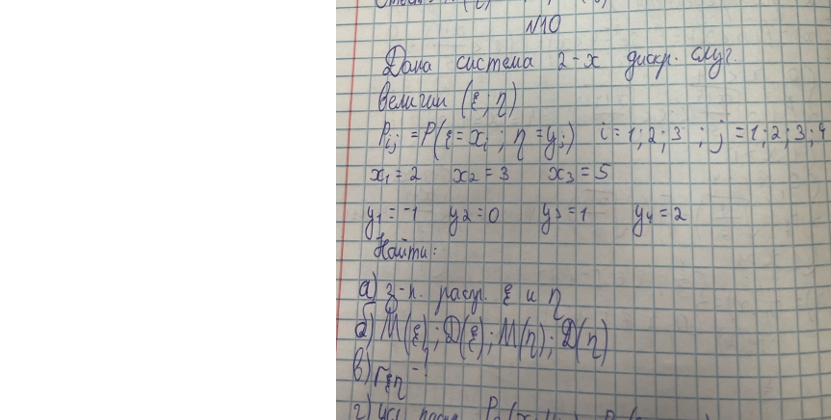 №10
Дана система 2-х дискр. случ.
величин (ξ, η)
Pij = P(ξ = xi ; η = yj) i = 1; 2; 3 ; j = 1; 2; 3; 4
x1 = 2 x2 = 3 x3 = 5
y1 = -1 y2 = 0 y3 = 1 y4 = 2
Найти:
а) з-н. распр. ξ и η
б) М(ξ); D(ξ); М(η); D(η)
в) rξη - ?
г)